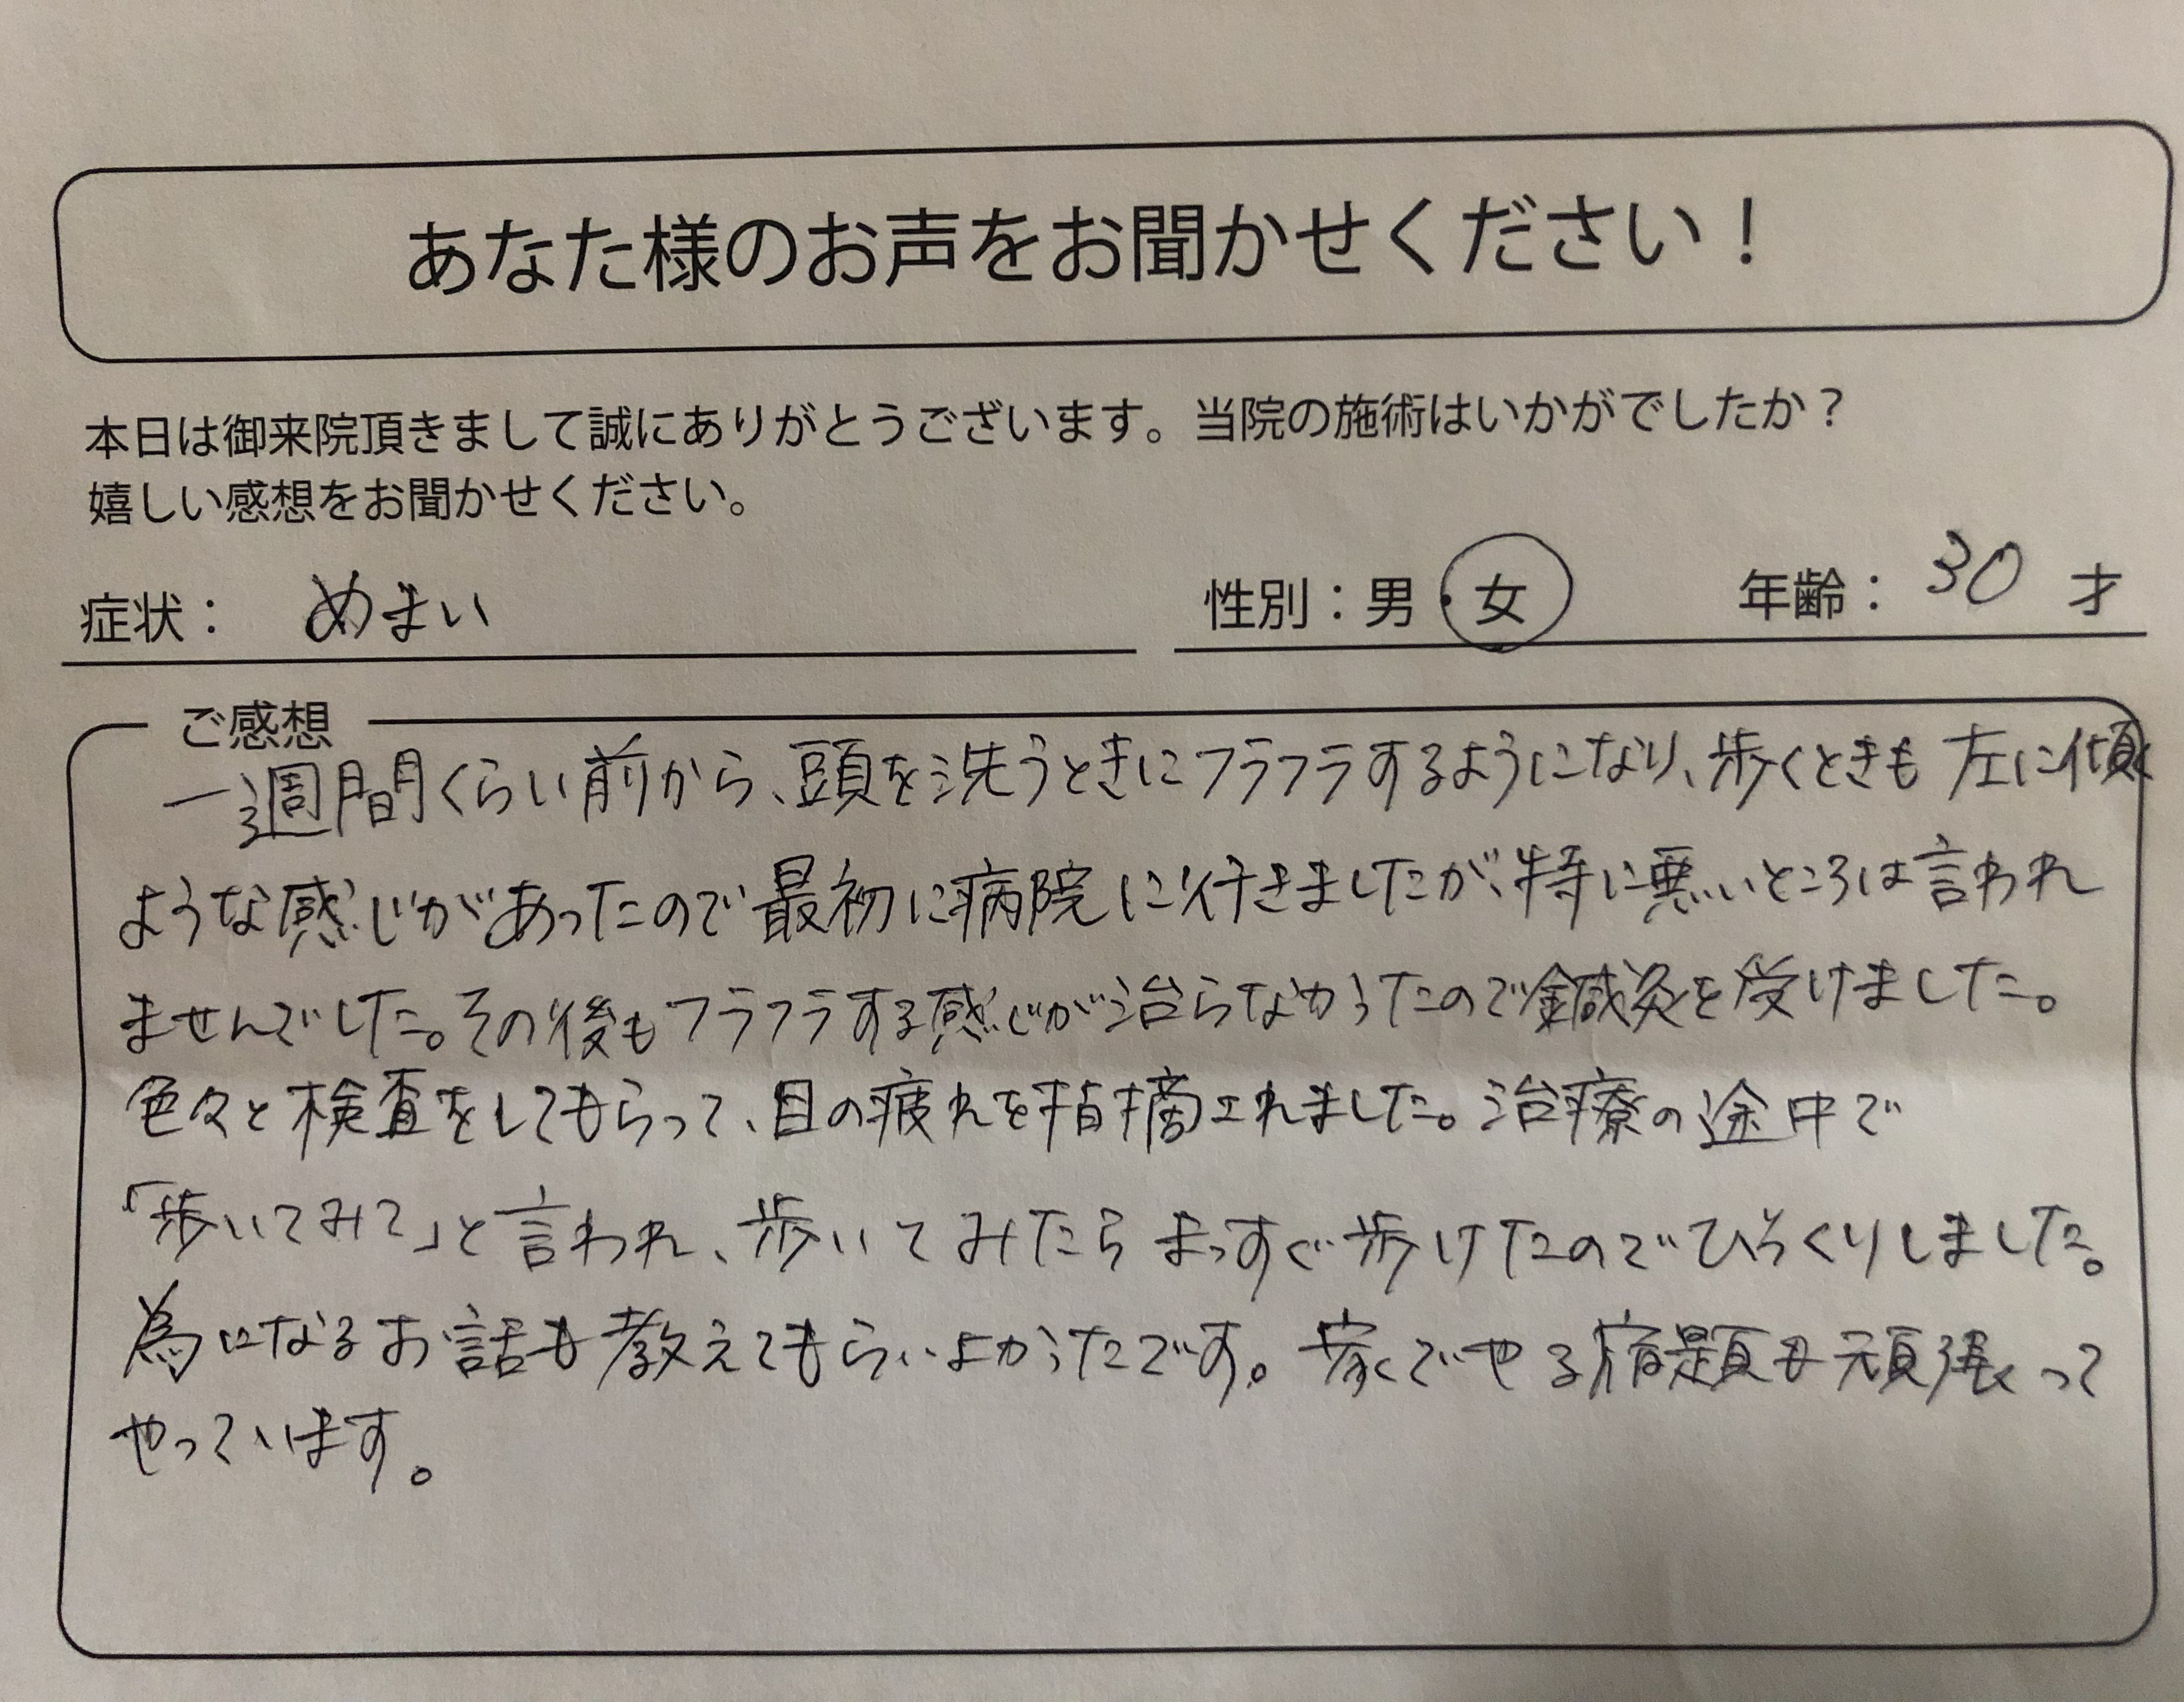 あなた様のお声をお聞かせください！
本日は御来院頂きまして誠にありがとうございます。当院の施術はいかがでしたか？
嬉しい感想をお聞かせください。
症状： めまい 性別：男・女 年齢： 30 才
ご感想
一週間くらい前から、頭を洗うときにフラフラするようになり、歩くときも左に傾く
ような感じがあったので最初に病院に行きましたが、特に悪いところは言われ
ませんでした。その後もフラフラする感じが治らなかったので鍼灸を受けました。
色々と検査をしてもらって、目の疲れを指摘されました。治療の途中で
「歩いてみて」と言われ、歩いてみたらまっすぐ歩けたのでびっくりしました。
為になるお話も教えてもらいよかったです。家でやる宿題も頑張って
やっています。